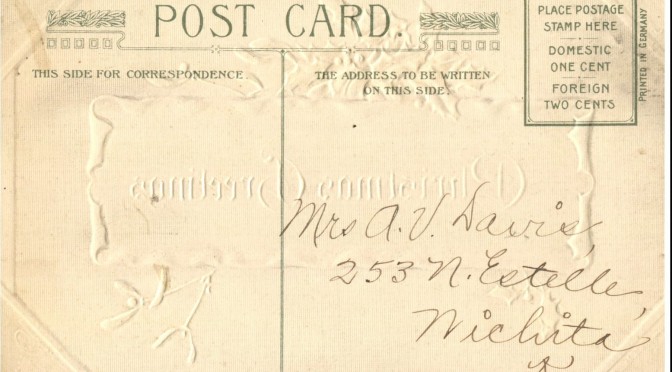 POST CARD.
THIS SIDE FOR CORRESPONDENCE.
THE ADDRESS TO BE WRITTEN
ON THIS SIDE.
PLACE POSTAGE
STAMP HERE
DOMESTIC
ONE CENT
FOREIGN
TWO CENTS
PRINTED IN GERMANY
Christmas Greetings
Mrs A. V. Davis,
253 N. Estelle,
Wichita